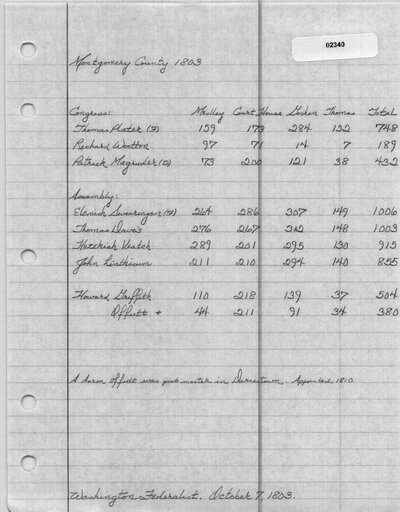 02340
Montgomery County 1803
Congress: Medley Court House Goshen Thomas Total
Thomas Plater (F) 159 173 284 132 748
Richard Wootton 97 71 14 7 189
Patrick Magruder (D) 73 200 121 38 432
Assembly:
Elemich Swearingen (F) 264 286 307 149 1006
Thomas Davis 276 267 312 148 1003
Hezekiah Veatch 289 201 295 130 915
John Linthicum 211 210 294 140 855
Howard Griffith 110 218 139 37 504
Offutt + 44 211 91 34 380
A Aaron Offutt was post master in Darnestown. Appointed 1810
Washington Federalist. October 7, 1803.